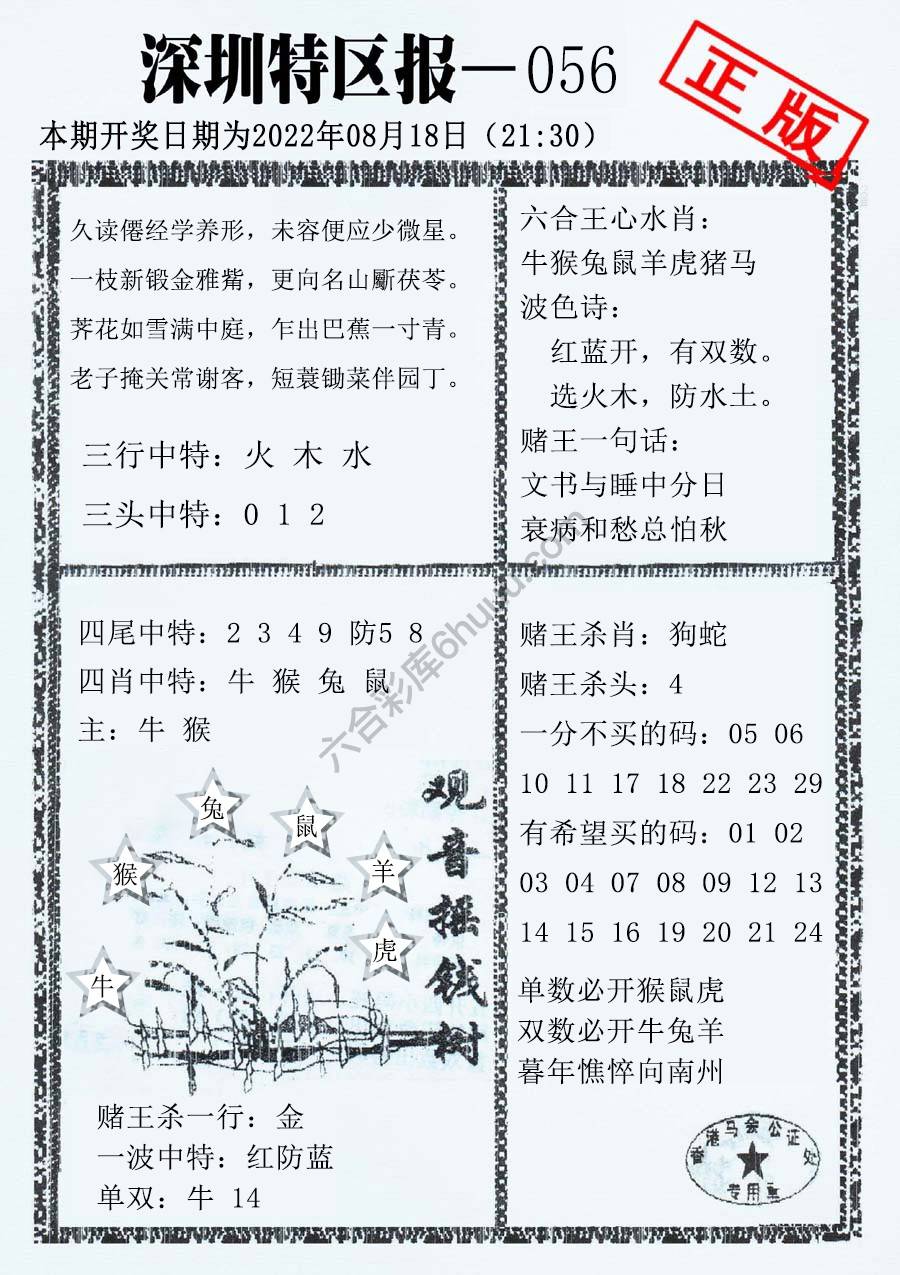 深圳特区报—056
正版
本期开奖日期为2022年08月18日（21:30）
久读僊经学养形，未容便应少微星。
一枝新锻金雅觜，更向名山斸茯苓。
荠花如雪满中庭，乍出巴蕉一寸青。
老子掩关常谢客，短蓑锄菜伴园丁。
三行中特：火 木 水
三头中特：0 1 2
六合王心水肖：
牛猴兔鼠羊虎猪马
波色诗：
红蓝开，有双数。
选火木，防水土。
赌王一句话：
文书与睡中分日
衰病和愁总怕秋
四尾中特：2 3 4 9 防5 8
四肖中特：牛 猴 兔 鼠
主：牛 猴
兔
鼠
猴
羊
虎
牛
观音摇钱树
赌王杀一行：金
一波中特：红防蓝
单双：牛 14
赌王杀肖：狗蛇
赌王杀头：4
一分不买的码：05 06
10 11 17 18 22 23 29
有希望买的码：01 02
03 04 07 08 09 12 13
14 15 16 19 20 21 24
单数必开猴鼠虎
双数必开牛兔羊
暮年憔悴向南州
香港马会公证处
专用章
六合彩库6huuu.com